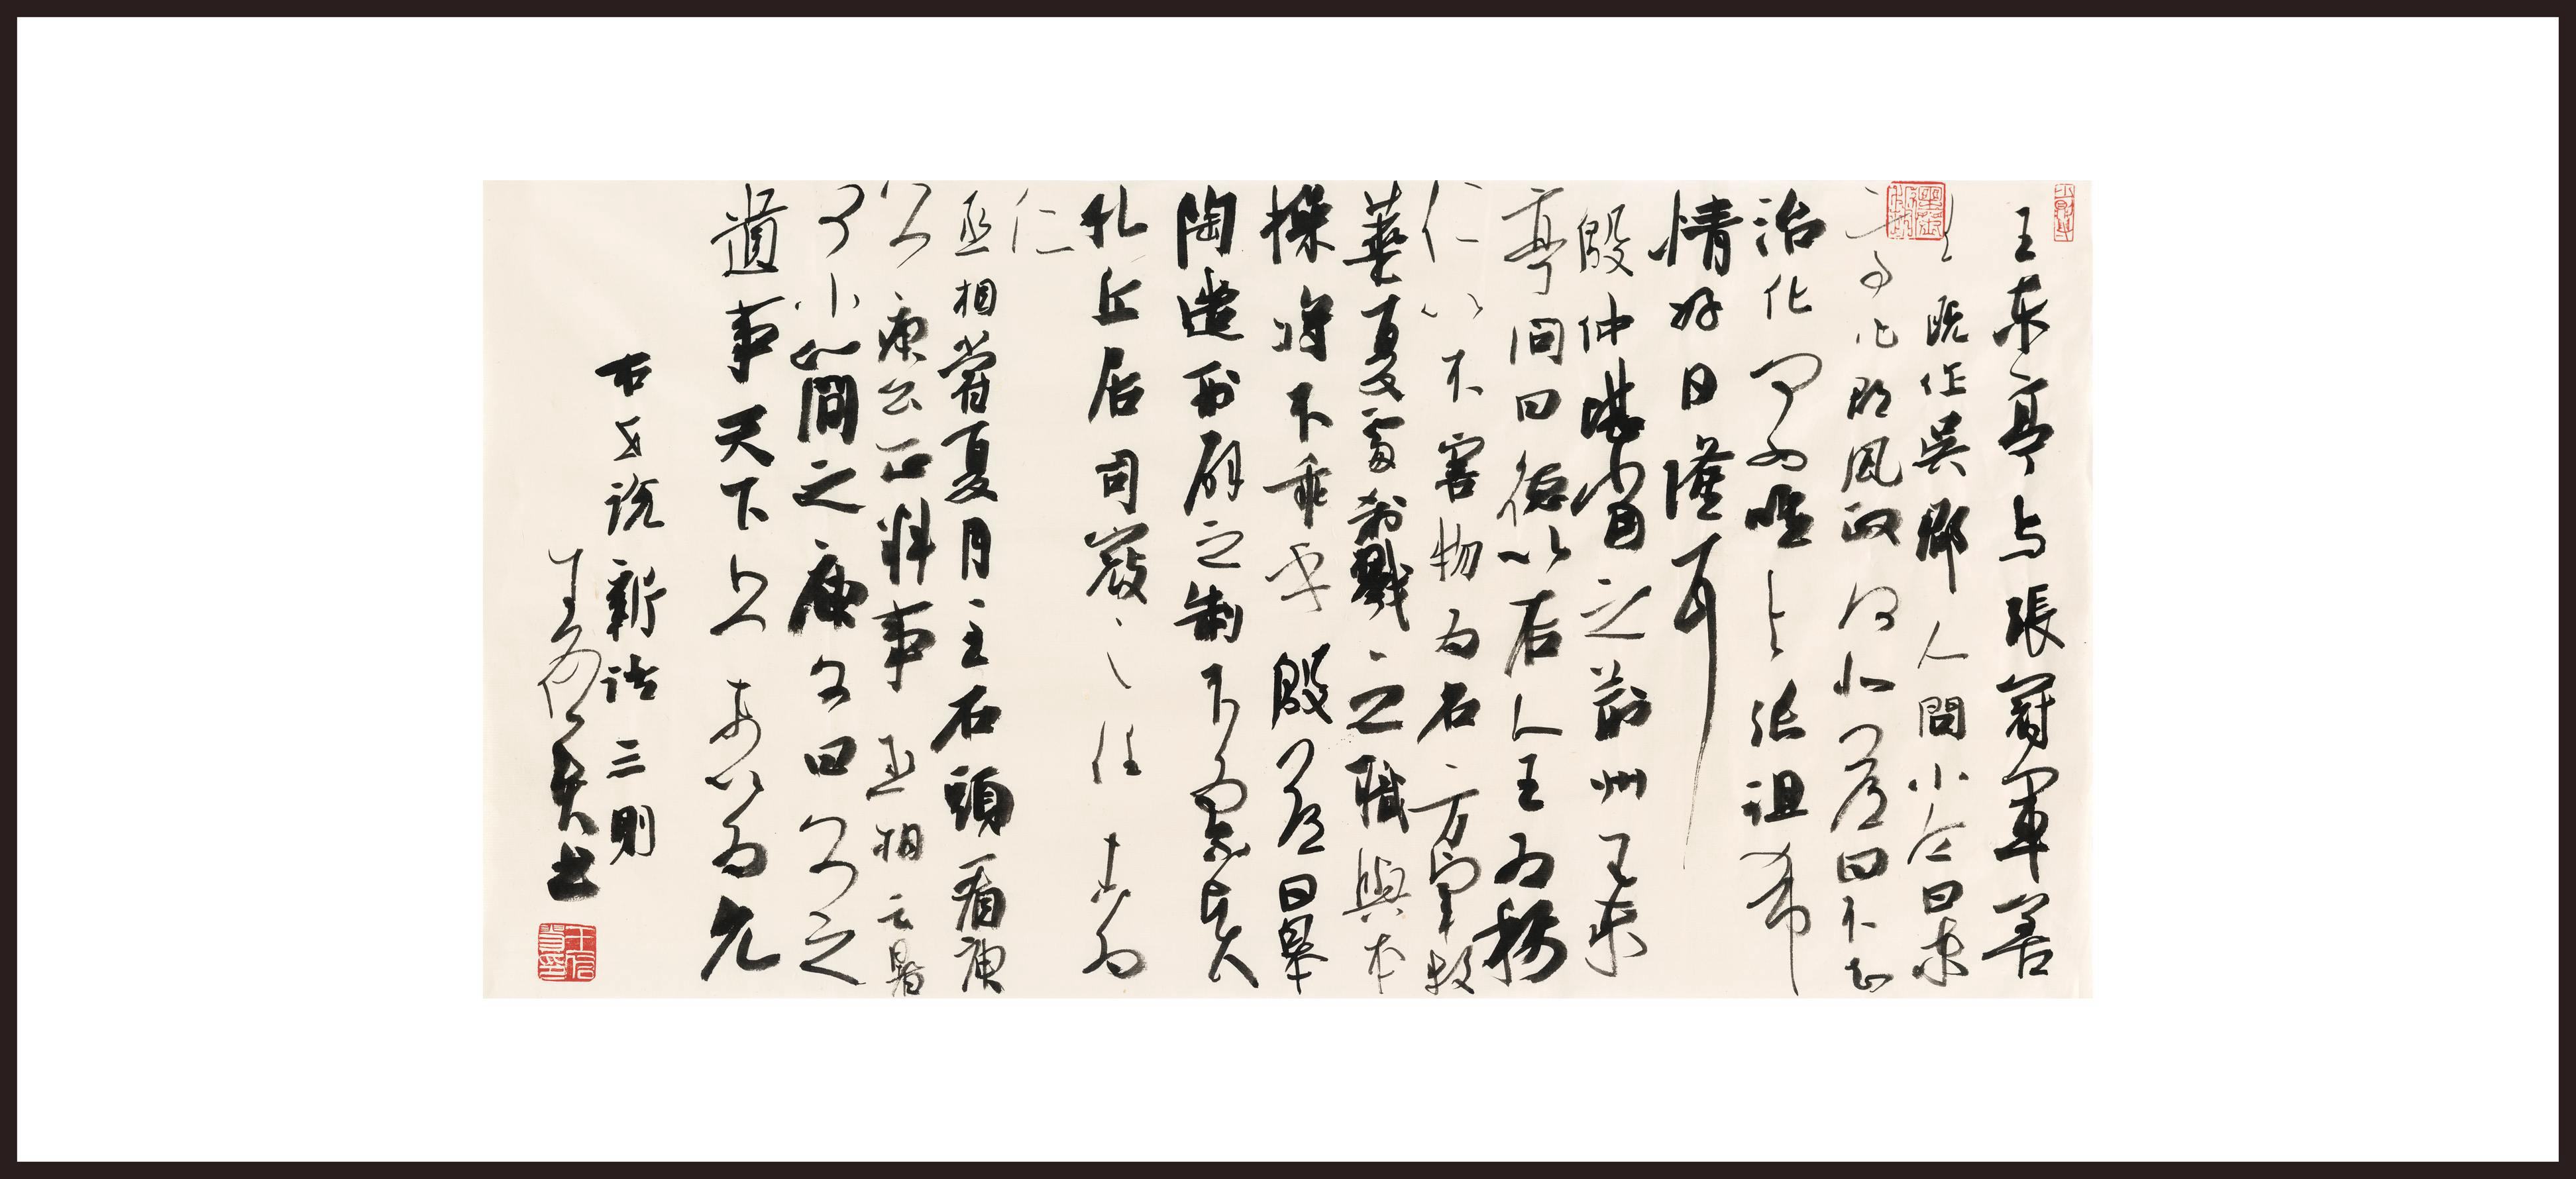 王东亭与張冠軍善
王既作吳郡人問小令曰東
亭作郡風政何似答曰不知
治化何如唯与張祖希
情好日隆耳
殷仲堪當之荊州王東
亭问曰德以居全为稱
仁以不害物为名方今宰牧
華夏處殺戮之職與本
操將不乖乎殷答曰皋
陶造刑辟之制不为不賢
孔丘居司寇之任未为不
仁
丞相嘗夏月至石頭看庾
公庾公正料事丞相云暑
可小簡之庾公曰公之
遺事天下亦未以为允
右世说新语三則